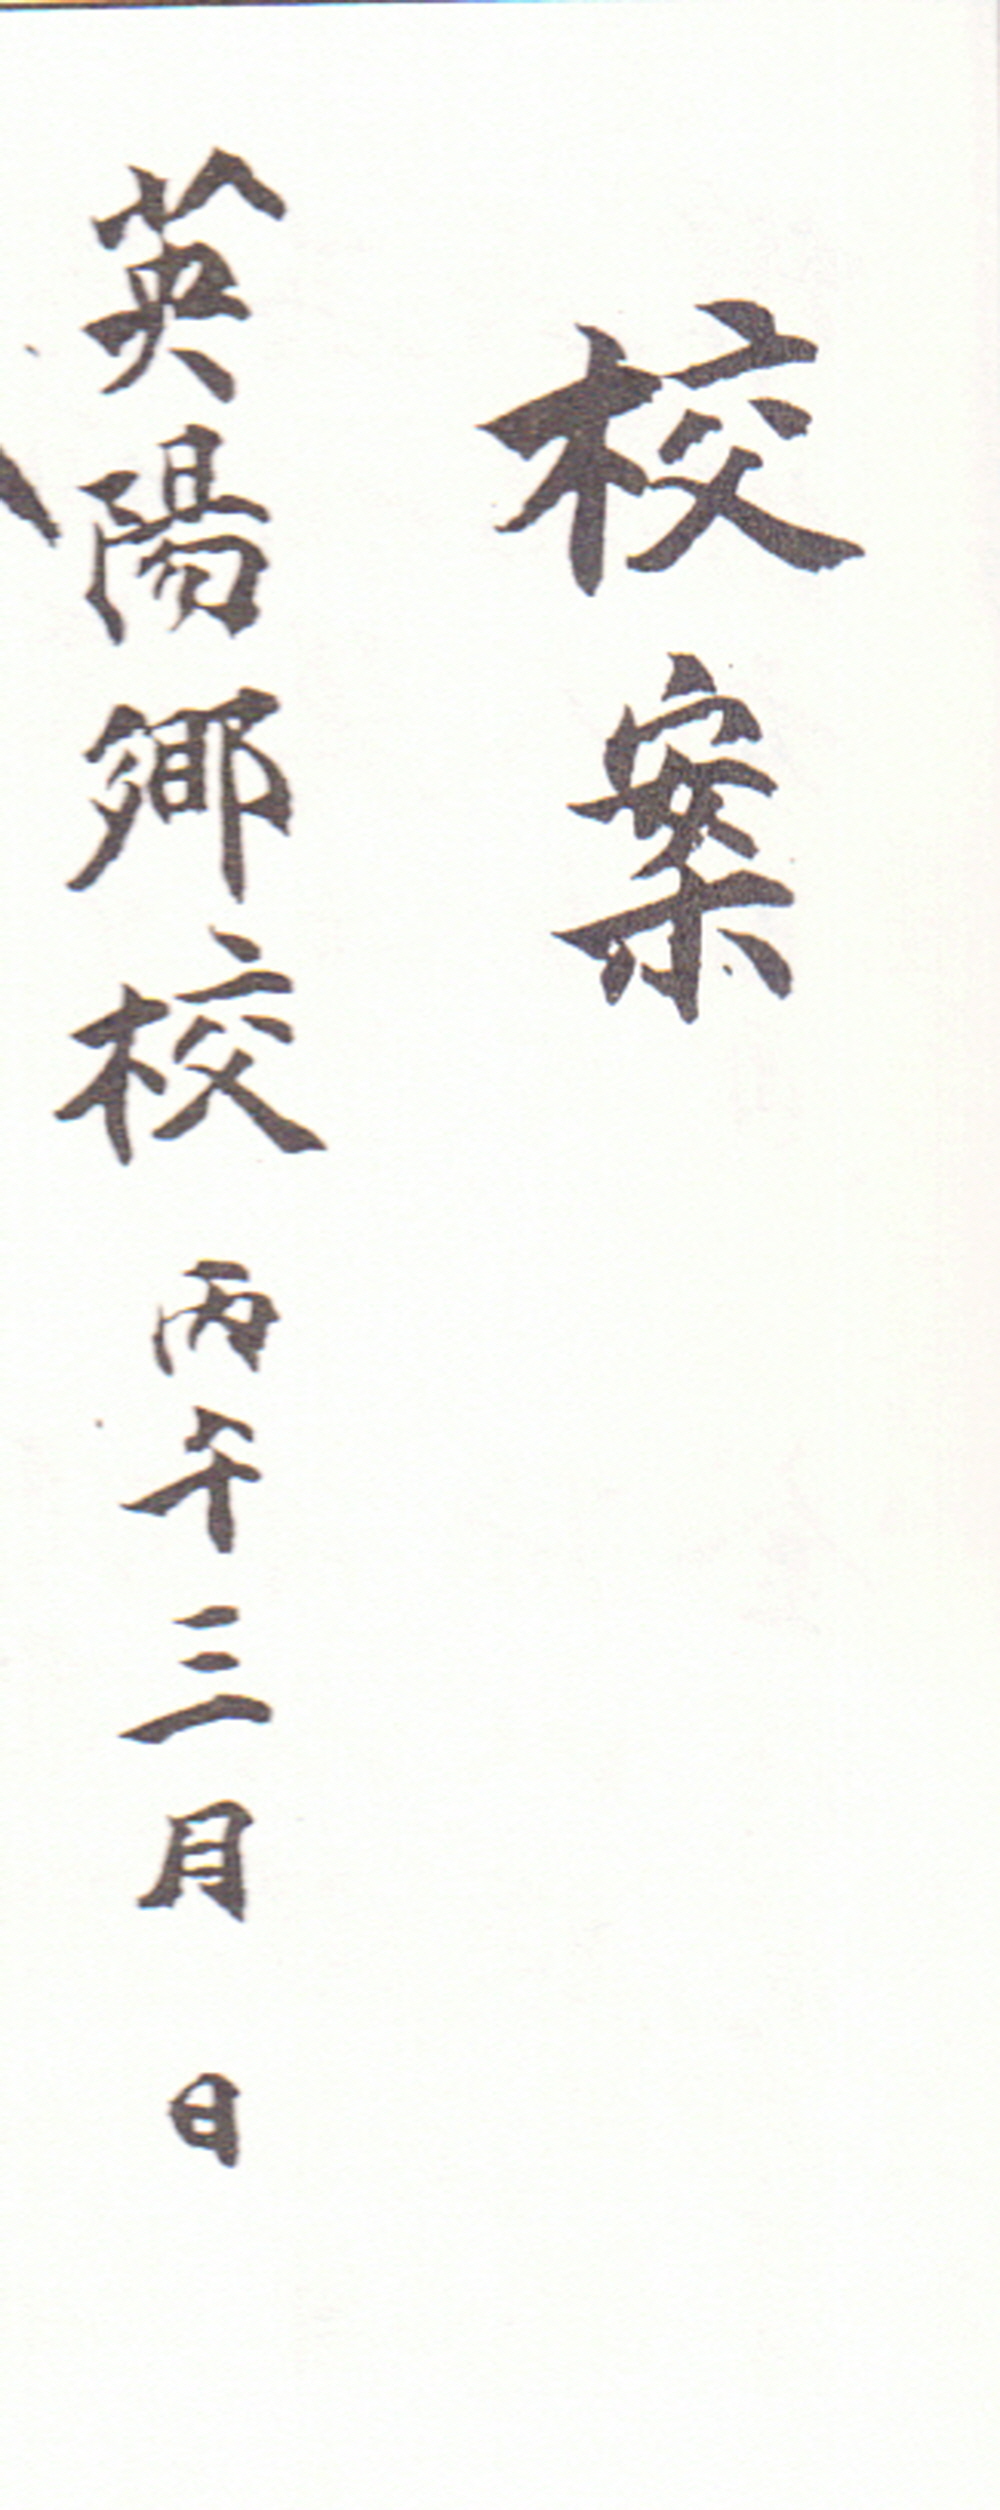 校案
英陽鄉校 丙午三月 日